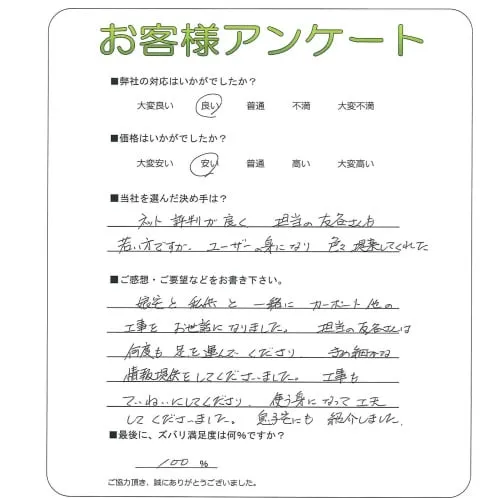 お客様アンケート
■弊社の対応はいかがでしたか？
大変良い 良い 普通 不満 大変不満
■価格はいかがでしたか？
大変安い 安い 普通 高い 大変高い
■当社を選んだ決め手は？
ネット評判が良く 担当の友各さんも
若い方ですが、ユーザーの身になり 色々提案してくれた
■ご感想・ご要望などをお書き下さい。
娘宅と私宅と一緒にカーポート他の
工事をお世話になりました。担当の友各さんは
何度も足を運んでくださり きめ細かな
情報提供をしてくださいました。工事も
ていねいにしてくださり、使う身になって工夫
してくださいました。息子宅にも紹介しました。
■最後に、ズバリ満足度は何%ですか？
100 %
ご協力頂き、誠にありがとうございました。